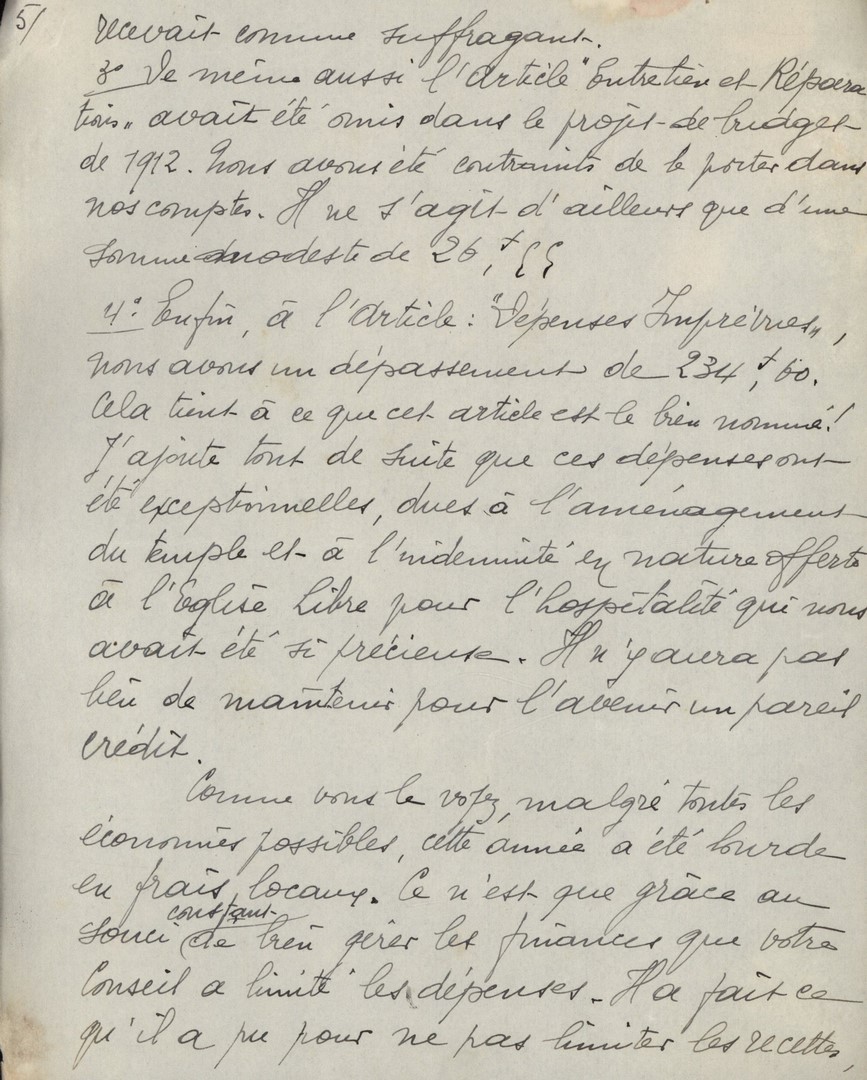 5/
recevait comme suffragant.
3° De même aussi l'article "Entretien et Répara
tions" avait été omis dans le projet de budget
de 1912. Nous avons été contraints de le porter dans
nos comptes. Il ne s'agit d'ailleurs que d'une
somme modeste de 26 f,
4° Enfin, à l'article : "Dépenses Imprévues",
nous avons un dépassement de 234 f, 60.
Cela tient à ce que cet article est le bien nommé !
J'ajoute tout de suite que ces dépenses ont
été exceptionnelles, dues à l'aménagement
du temple et à l'indemnité en nature offerte
à l'Eglise Libre pour l'hospitalité qui nous
avait été si précieuse. Il n'y aura pas
lieu de maintenir pour l'avenir un pareil
crédit.
Comme vous le voyez, malgré toutes les
économies possibles, cette année a été lourde
en frais locaux. Ce n'est que grâce au
souci constant de bien gérer les finances que votre
Conseil a limité les dépenses. Il a fait ce
qu'il a pu pour ne pas limiter les recettes,